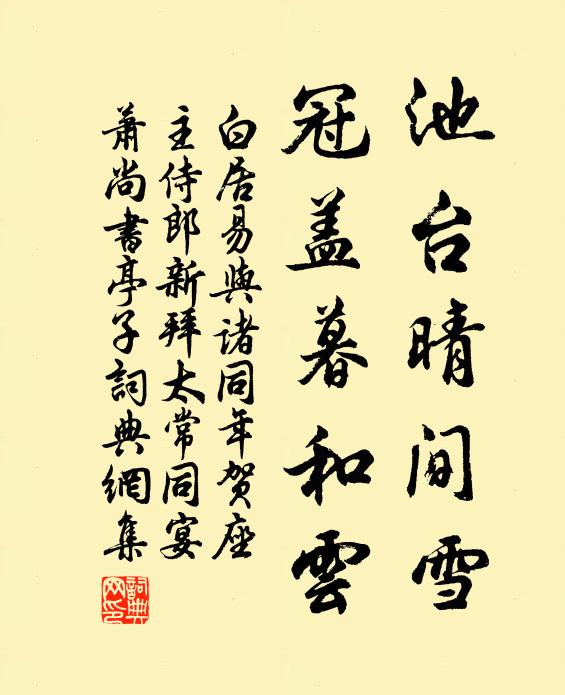 池台晴间雪
冠盖暮和雲
白居易與诸同年贺座
主侍郎新拜太常同宴
萧尚書亭子詞典網集
詞典网印